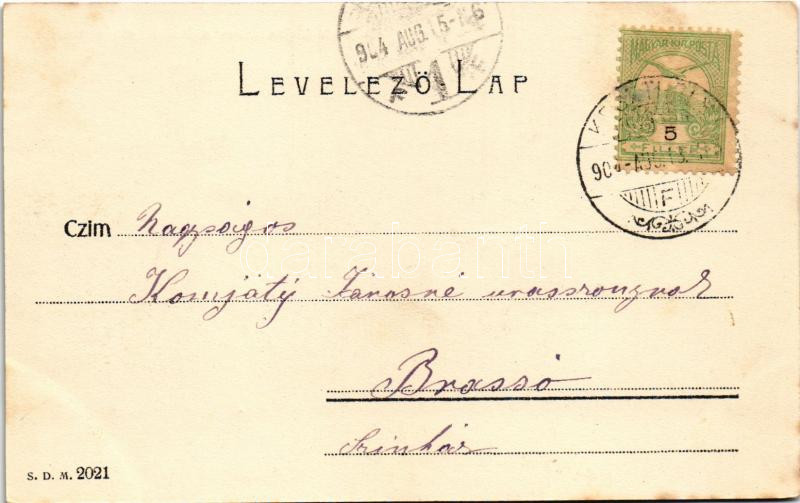 904 AUG. 15
LEVELEZŐ LAP
MAGYAR KIR. POSTA
5
FILLÉR
904 AUG. 15
F
Czim Nagyságos
Komjáty Jánosné urasszonynak
Brassó
Szinház
S. D. M. 2021
darabanth